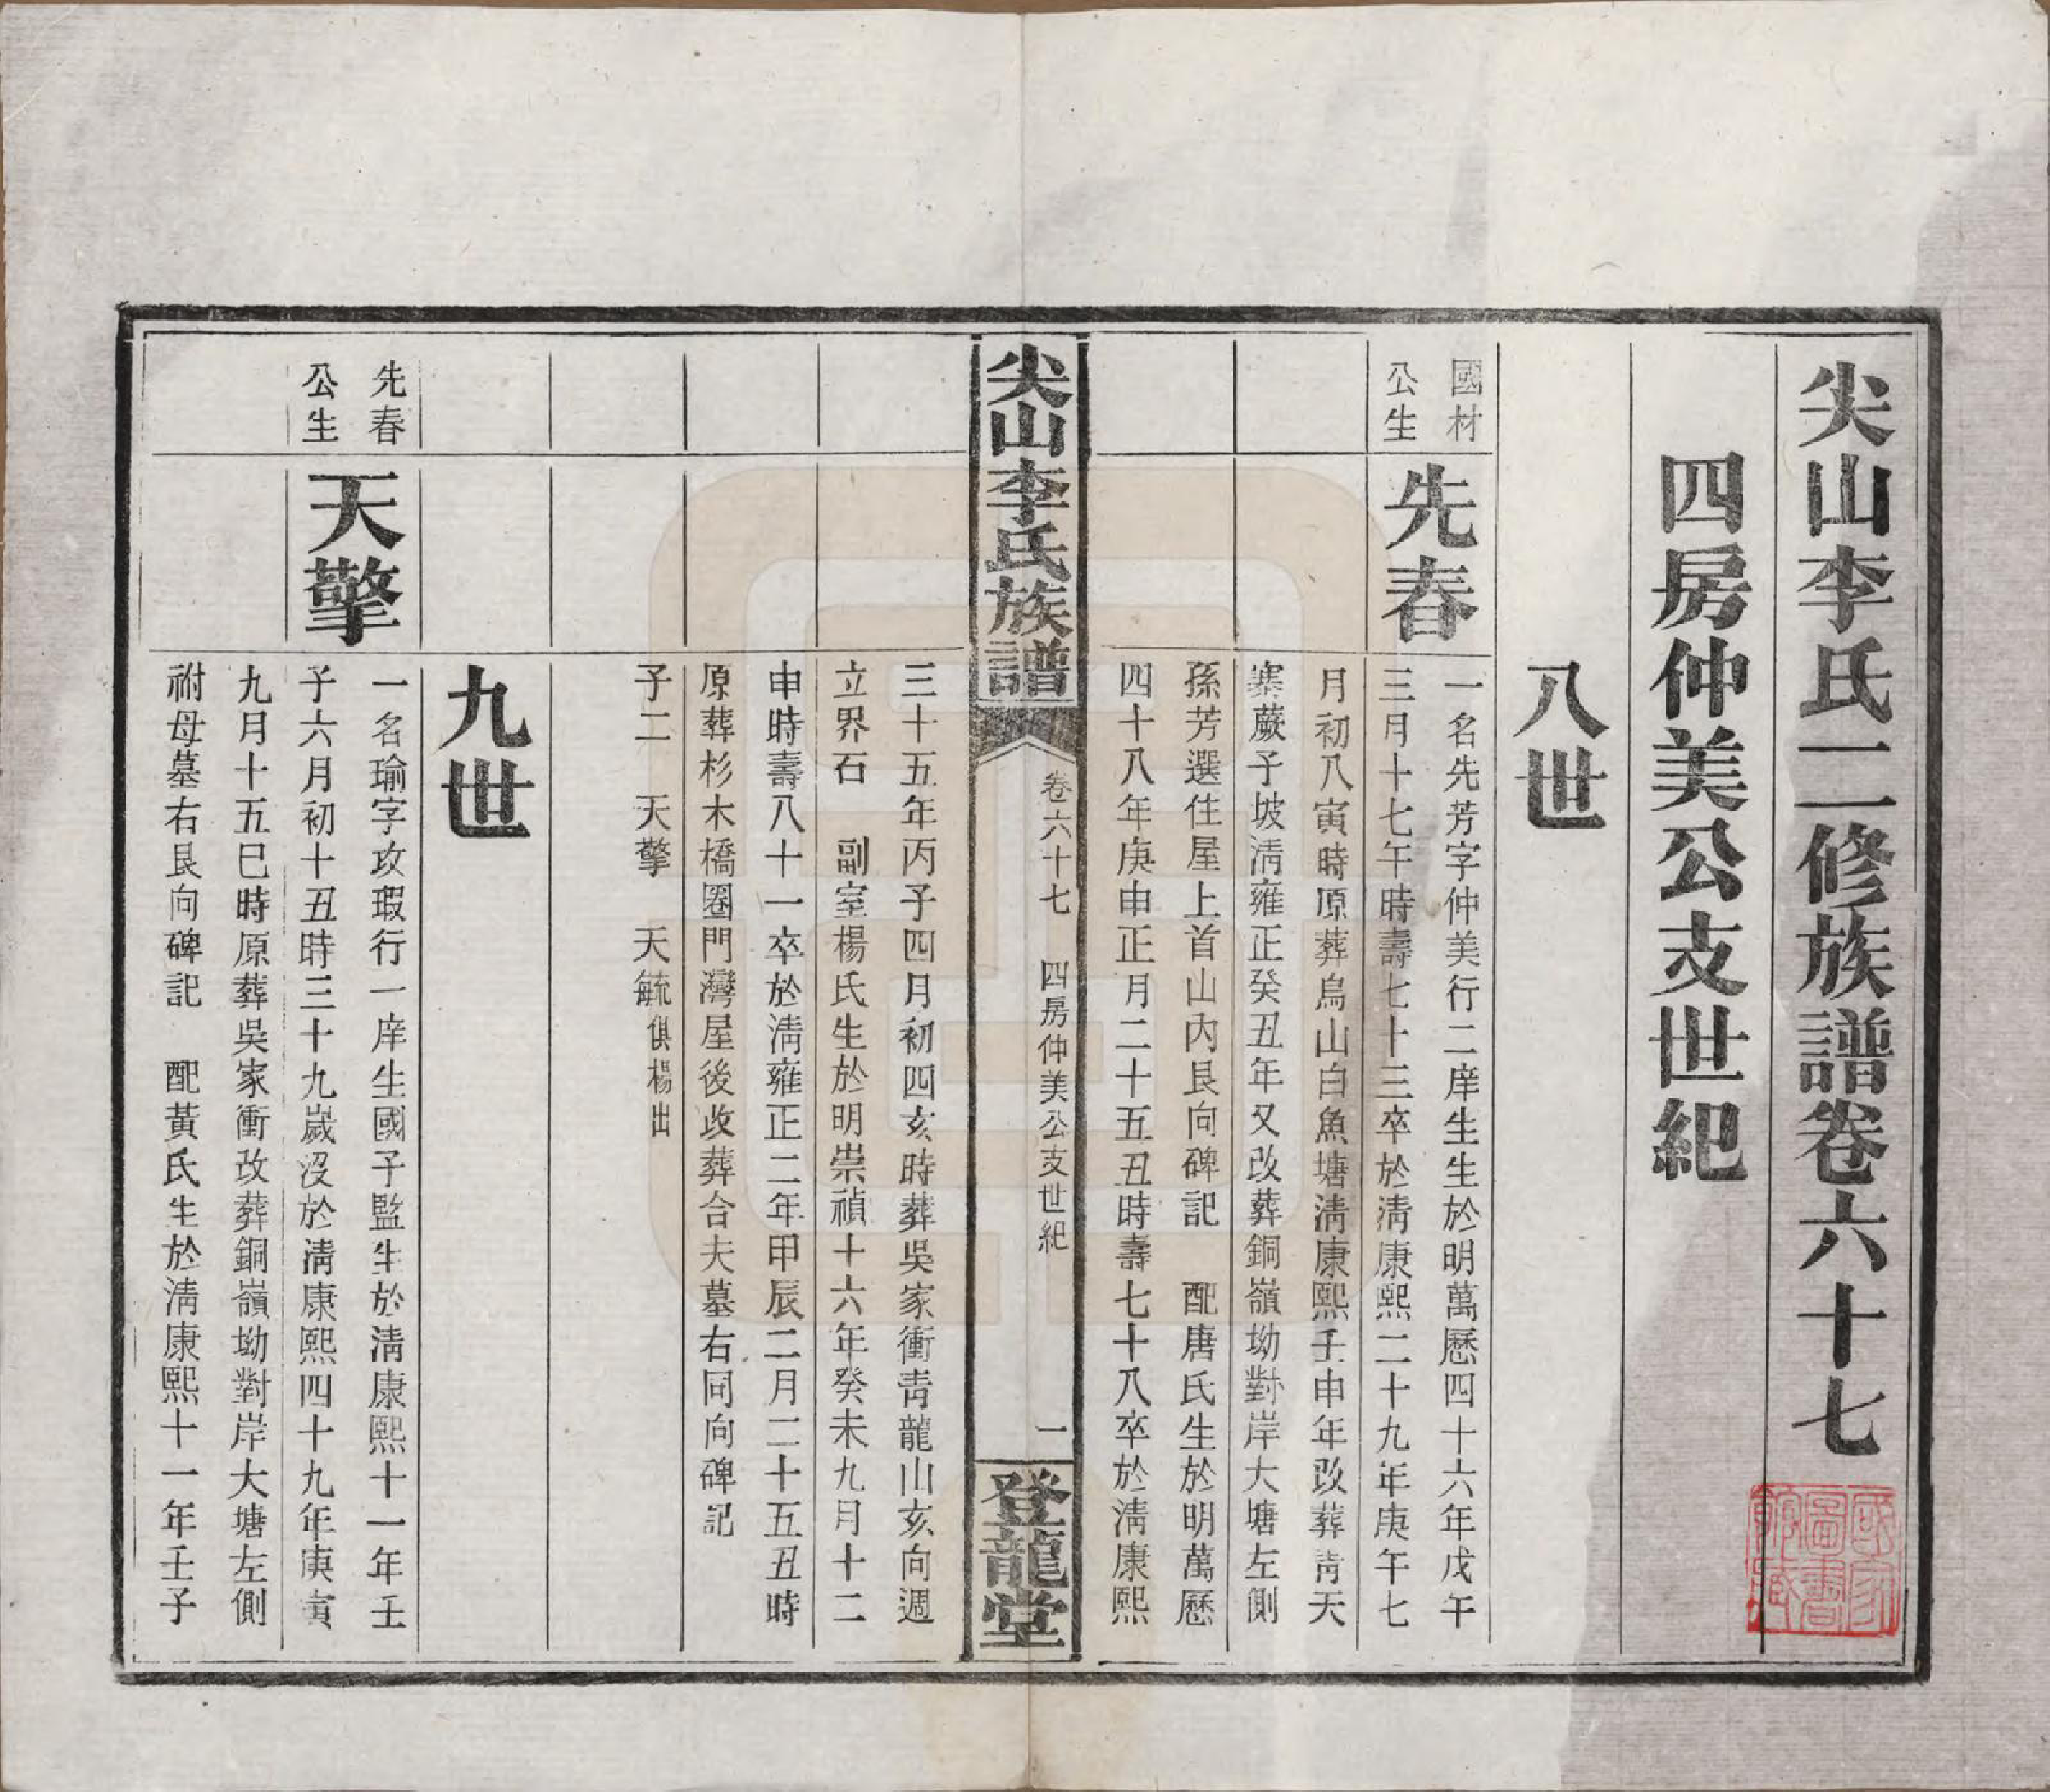 尖山李氏二修族譜卷六十七
四房仲美公支世紀
八世
國材
公生
先春
一名先芳字仲美行二庠生生於明萬歷四十六年戊午
三月十七午時壽七十三卒於淸康熙二十九年庚午七
月初八寅時原葬烏山白魚塘淸康熙壬申年改葬靑天
寨蕨予坡淸雍正癸丑年又改葬銅嶺坳對岸大塘左側
孫芳選住屋上首山內艮向碑記　配唐氏生於明萬歷
四十八年庚申正月二十五丑時壽七十八卒於淸康熙
尖山李氏族譜
卷六十七　四房仲美公支世紀
一
登龍堂
三十五年丙子四月初四亥時葬吳家衝靑龍山亥向週
立界石　副室楊氏生於明崇禎十六年癸未九月十二
申時壽八十一卒於淸雍正二年甲辰二月二十五丑時
原葬杉木橋圈門灣屋後改葬合夫墓右同向碑記
子二　天擎　天毓俱楊出
九世
先春
公生
天擎
一名瑜字攻瑕行一庠生國子監生於淸康熙十一年壬
子六月初十丑時三十九歲沒於淸康熙四十九年庚寅
九月十五巳時原葬吳家衝改葬銅嶺坳對岸大塘左側
祔母墓右艮向碑記　配黃氏生於淸康熙十一年壬子
國家
圖書
館藏